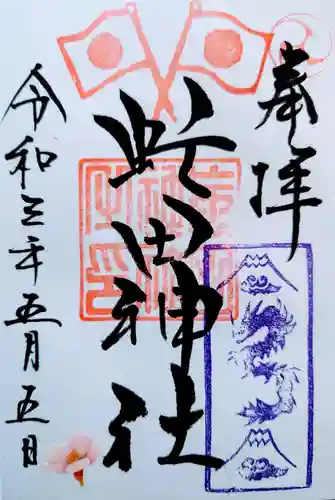 奉拝
虻田神社
令和三年五月五日